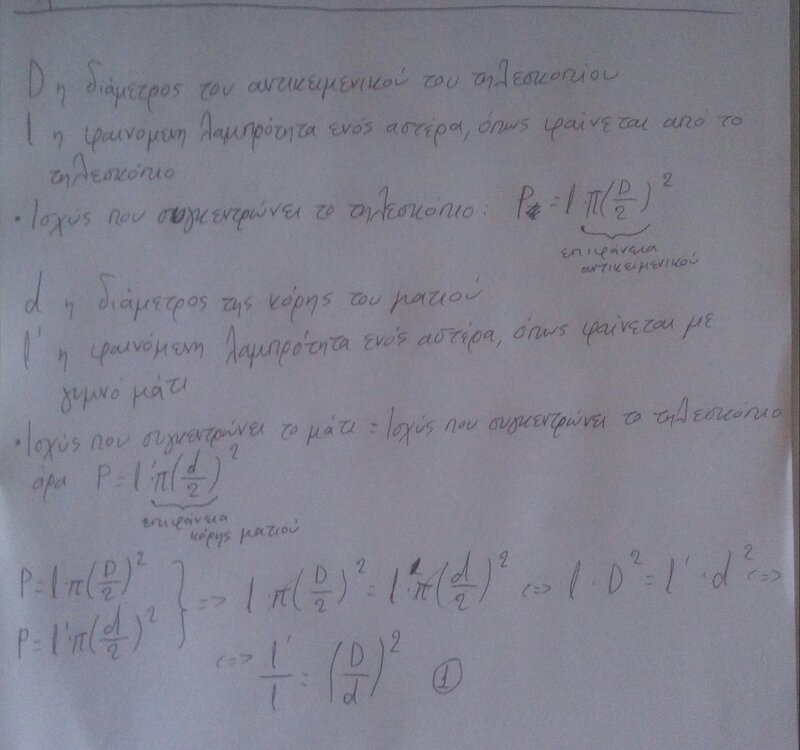 D η διάμετρος του αντικειμενικού του τηλεσκοπίου
l η φαινομενη λαμπρότητα ενός αστέρα, όπως φαίνεται από το
τηλεσκόπιο
• Ισχύς που συγκεντρώνει το τηλεσκόπιο: P = l·π(D/2)²
επιφάνεια
αντικειμενικού
d η διάμετρος της κόρης του ματιού
l' η φαινόμενη λαμπρότητα ενός αστέρα, όπως φαίνεται με
γυμνό μάτι
• Ισχύς που συγκεντρώνει το μάτι = Ισχύς που συγκεντρώνει το τηλεσκόπιο
άρα P = l'·π(d/2)²
επιφάνεια
κόρης ματιού
P = l·π(D/2)²
P = l'π(d/2)² } => l·π(D/2)² = l'·π(d/2)² <=> l·D² = l'·d² <=>
<=> l'/l = (D/d)² ①